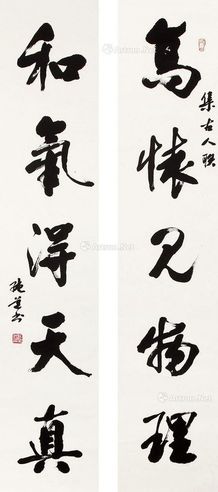 高懷見物理
集古人聯
和氣得天真